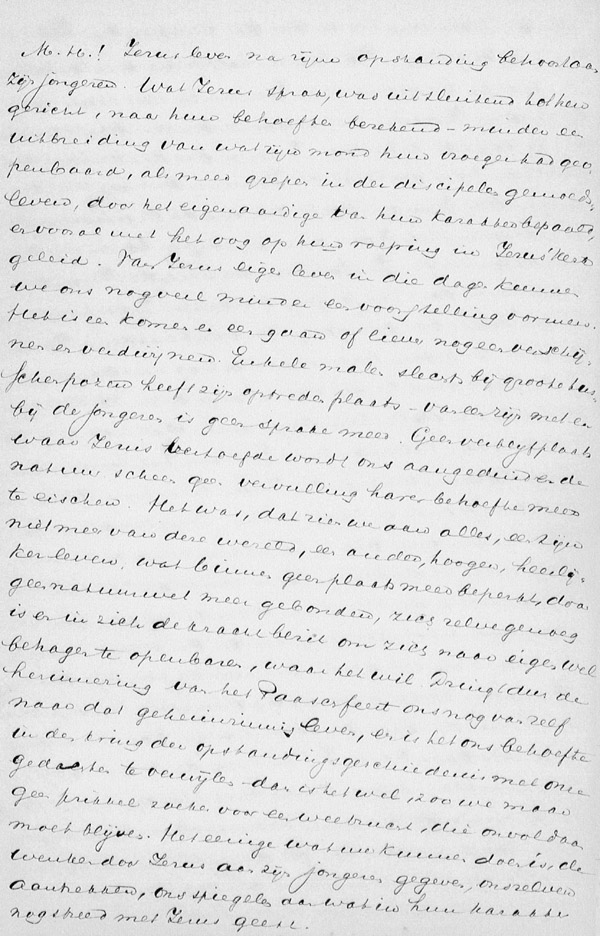 M.H.! Jezus leven na zijn opstanding behoort aan
zijn jongeren. Wat Jezus sprak, was uitsluitend tot hen
gericht, naar hun behoeften berekend – minder een
uitbreiding van wat zijn mond hun vroeger had geo-
penbaard, als meer grepen in der discipelen gemoeds-
leven, door het eigenaardige van hun karakter bepaald,
en vooral met het oog op hun roeping in Jezus' kerk
geleid. Van Jezus eigen leven in die dagen kunnen
we ons nog veel minder een voorstelling vormen.
Het is een komen en een gaan of liever nog een verschij-
nen en verdwijnen. Enkele malen slechts bij groote tus-
schenpozen heeft zijn optreden plaats – van een zijn met en
bij de jongeren is geen sprake meer. Geen verblijfplaats
waar Jezus vertoefde wordt ons aangeduid en de
natuur scheen geen vervulling harer behoefte meer
te eischen. Het was, dat zien we aan alles, een zijn
niet meer van deze wereld, een ander, hooger, heerlij-
ker leven, wat binnen geen plaats meer beperkt, door
geen natuurwet meer gebonden, zich zelve genoeg
is en in zich de kracht bezit om zich naar eigen wel
behagen te openbaren, waar het wil. Dringt dus de
herinnering van het Paaschfeest ons nog van zelf
naar dat geheimzinnig leven, en is het ons behoefte
in den kring der opstandingsgeschiedenis met onze
gedachten te verwijlen – dan is het wel, zoo we maar
geen prikkel zoeken voor een weetzucht, die onvoldaan
moet blijven. Het eenige wat we kunnen doen is, de
wenken door Jezus aan zijn jongeren gegeven, ons zelven
aantrekken, ons spiegelen aan wat in hun karakter
nog streed met Jezus geest.